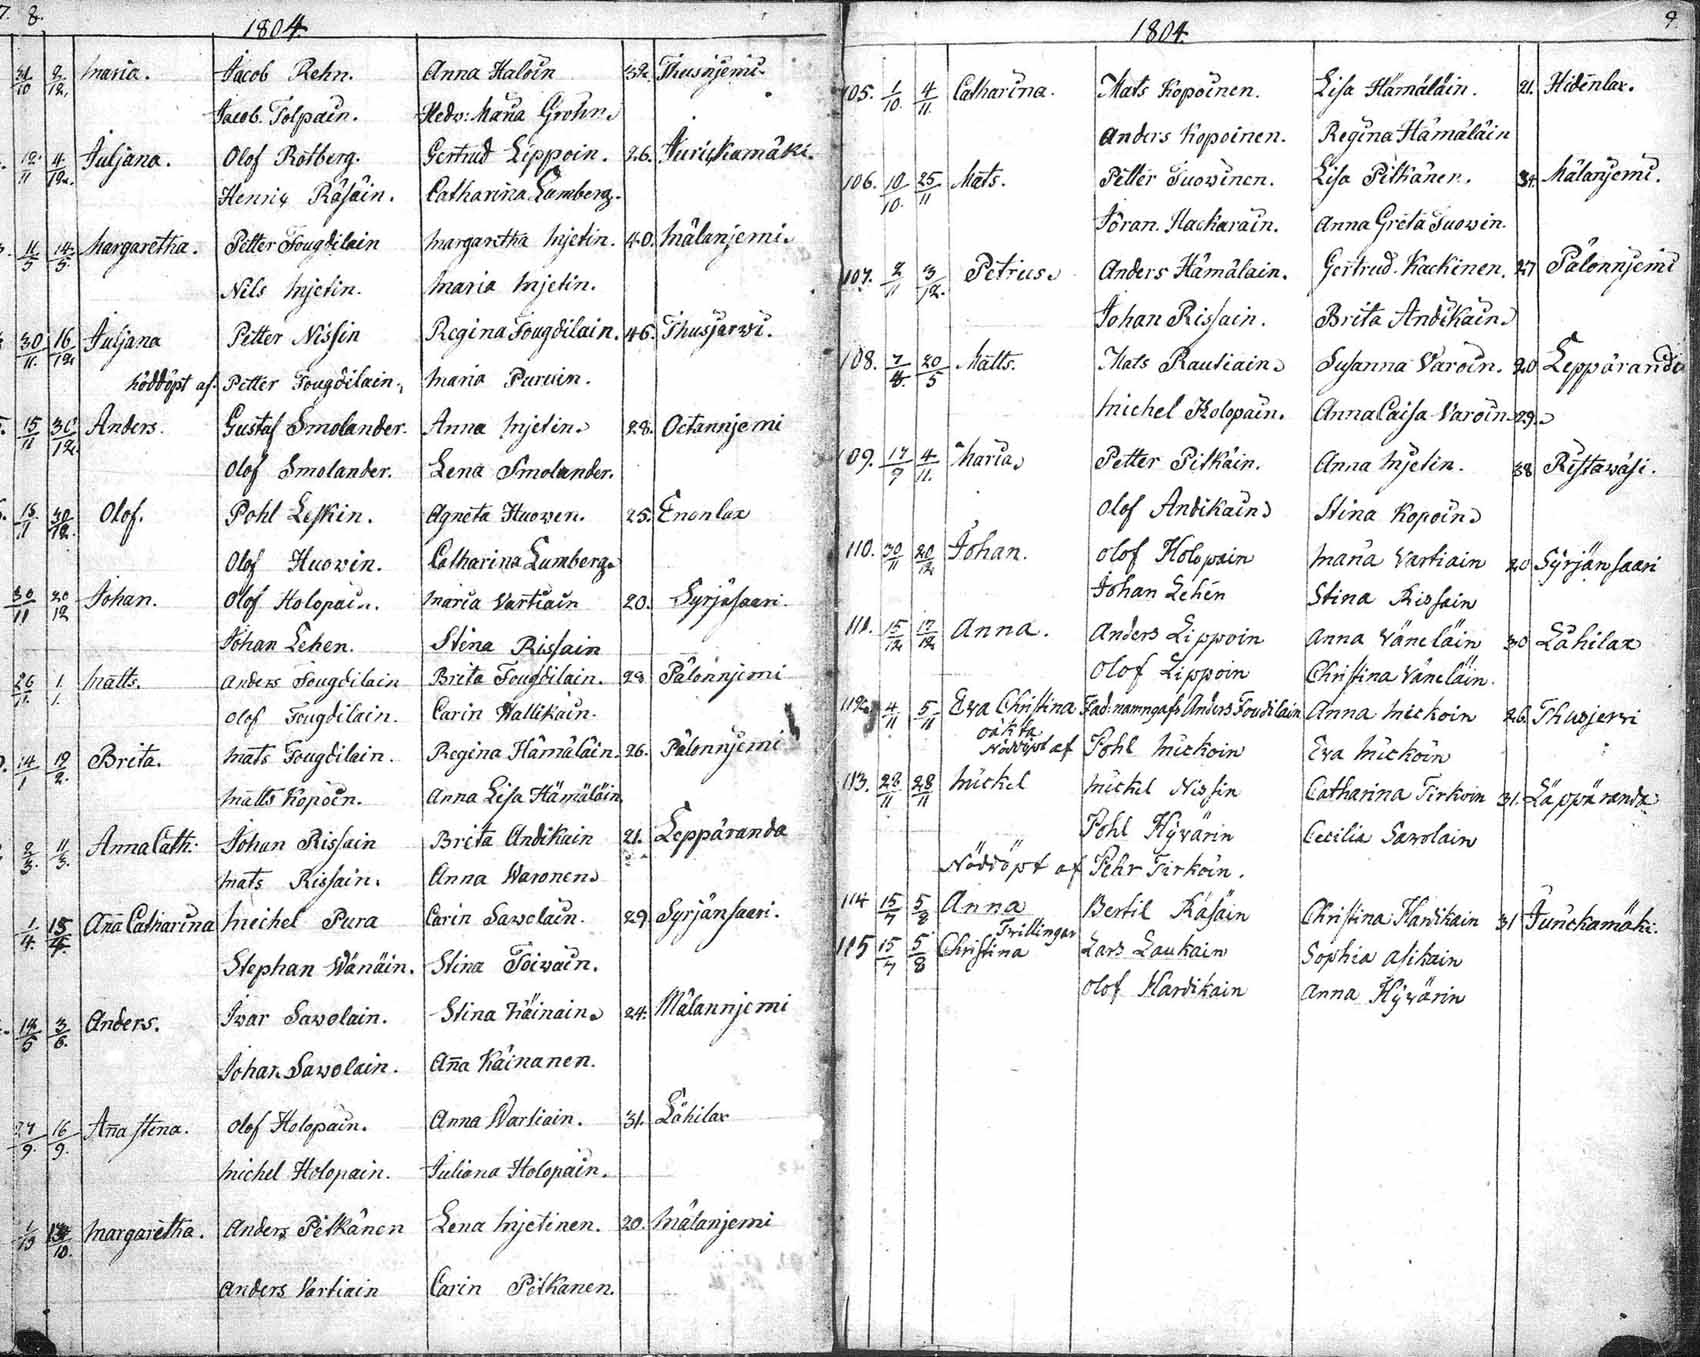 7. 8.
1804.
31/10 9/12. Maria. Jacob Rehn. Anna Haloin 32. Thusnjemi.
Jacob Tolpain. Hedv: Maria Grohn.
12/11 4/12. Juljana. Olof Rotberg. Gertrud Lippoin. 26. Juri
Henri Räsäin. Catharina Lumberg.
11/5 14/5. Margaretha. Petter Fougdilain Margaretha Mjetin. 40. Mälanjemi.
Nils Mjetin. Maria Mjetin.
30/11. 16/12 Juljana Petter Nissin Regina Fougdilain. 46. Thusjarwi.
nöddöpt af. Petter Fougdilain, Maria Puruin.
15/11 30/12. Anders. Gustaf Smolander. Anna Mjetin. 28. Octannjemi
Olof Smolander. Lena Smolander.
15/11 30/12. Olof. Pohl Leskin. Agneta Huowen. 25. Enonlax
Olof Huowin. Catharina Lumberg.
30/11 20/12 Johan. Olof Holopain. Maria Vartiain 20. Syrjäsaari.
Johan Lehen. Stina Rissain
26/11. 1/1. Matts. Anders Fougdilain Brita Fougdilain. 28 Pålonnjemi
Olof Fougdilain. Carin Hallikain.
14/1 12/2. Brita. Mats Fougdilain. Regina Hämäläin. 26. Pålonnjemi
Matts Kopoin. Anna Lisa Hämäläin.
2/3. 11/3. Anna Cath: Johan Rissain Brita Andikain 21. Leppäranda
Mats Rissain. Anna Waronen.
1/4. 15/4. Aña Catharina Michel Pura Carin Sawolain. 29. Syrjänsaari.
Stephan Wänäin. Stina Toiwain.
14/5 3/6. Anders. Iwar Sawolain. Stina Käinain. 24. Mälannjemi
Johan Sawolain. Aña Käinanen.
27/9. 16/9. Aña Stina. Olof Holopain. Anna Wartiain. 31. Lähilax
Michel Holopain. Juliana Holopain.
Margaretha. Anders Pitkänen Lena Mjetinen. 20. Mälanjemi
Anders Vartiain Carin Pitkanen.
1804. 9.
105. 1/10. 4/11. Catharina. Mats Kopoinen. Lisa Hämäläin. 21. Hidenlax.
Anders Kopoinen. Regina Hämäläin
106. 10/10. 25/11 Mats. Petter Tuowinen. Lisa Pitkänen. 34. Mälanjemi.
Jöran. Hackarain. Anna Greta Tuowin.
107. 2/11 3/12. Petrus. Anders Hämälain. Gertrud. Kackinen. 27 Pålonnjemi
Johan Rissain. Brita Andikain.
108. 20/5 Matts. Mats Rautiain. Susanna Varoin. 20 Leppäranda
Michel Holopain. Anna Caisa Varoin. 29.
109. 17/7 4/11. Maria. Petter Pitkäin. Anna Mjetin. 38 Ristawäsi.
Olof Andikain. Stina Kopoin.
110. 30/11 20/12 Johan. Olof Holopain Maria Vartiain 20 Syrjänsaari
Johan Lehén Stina Rissain
111. 15/12 17/12 Anna. Anders Lippoin Anna Väneläin 30 Lähilax
Olof Lippoin Christina Väneläin.
112. 4/11 5/11 Eva Christina Fad: namngafs Anders Foudilain Anna Mickoin 26. Thusjerwi
oäkta
Nöddöpt af Pohl Mickoin Eva Mickoin
113. 22/11 28/11 Mickel Mickel Nissin Catharina Tirkoin 31. Läppäranda
Pohl Hyvärin Cecilia Sawolain
Nöddöpt af Pehr Tirkoin.
114 15/7 5/8 Anna Bertil Räsäin Christina Hardikain 31 Junckamäki.
Trillingar
115 15/7 5/8 Christina Lars Laukain Sophia Asikain
Olof Hardikain Anna Hyvärin